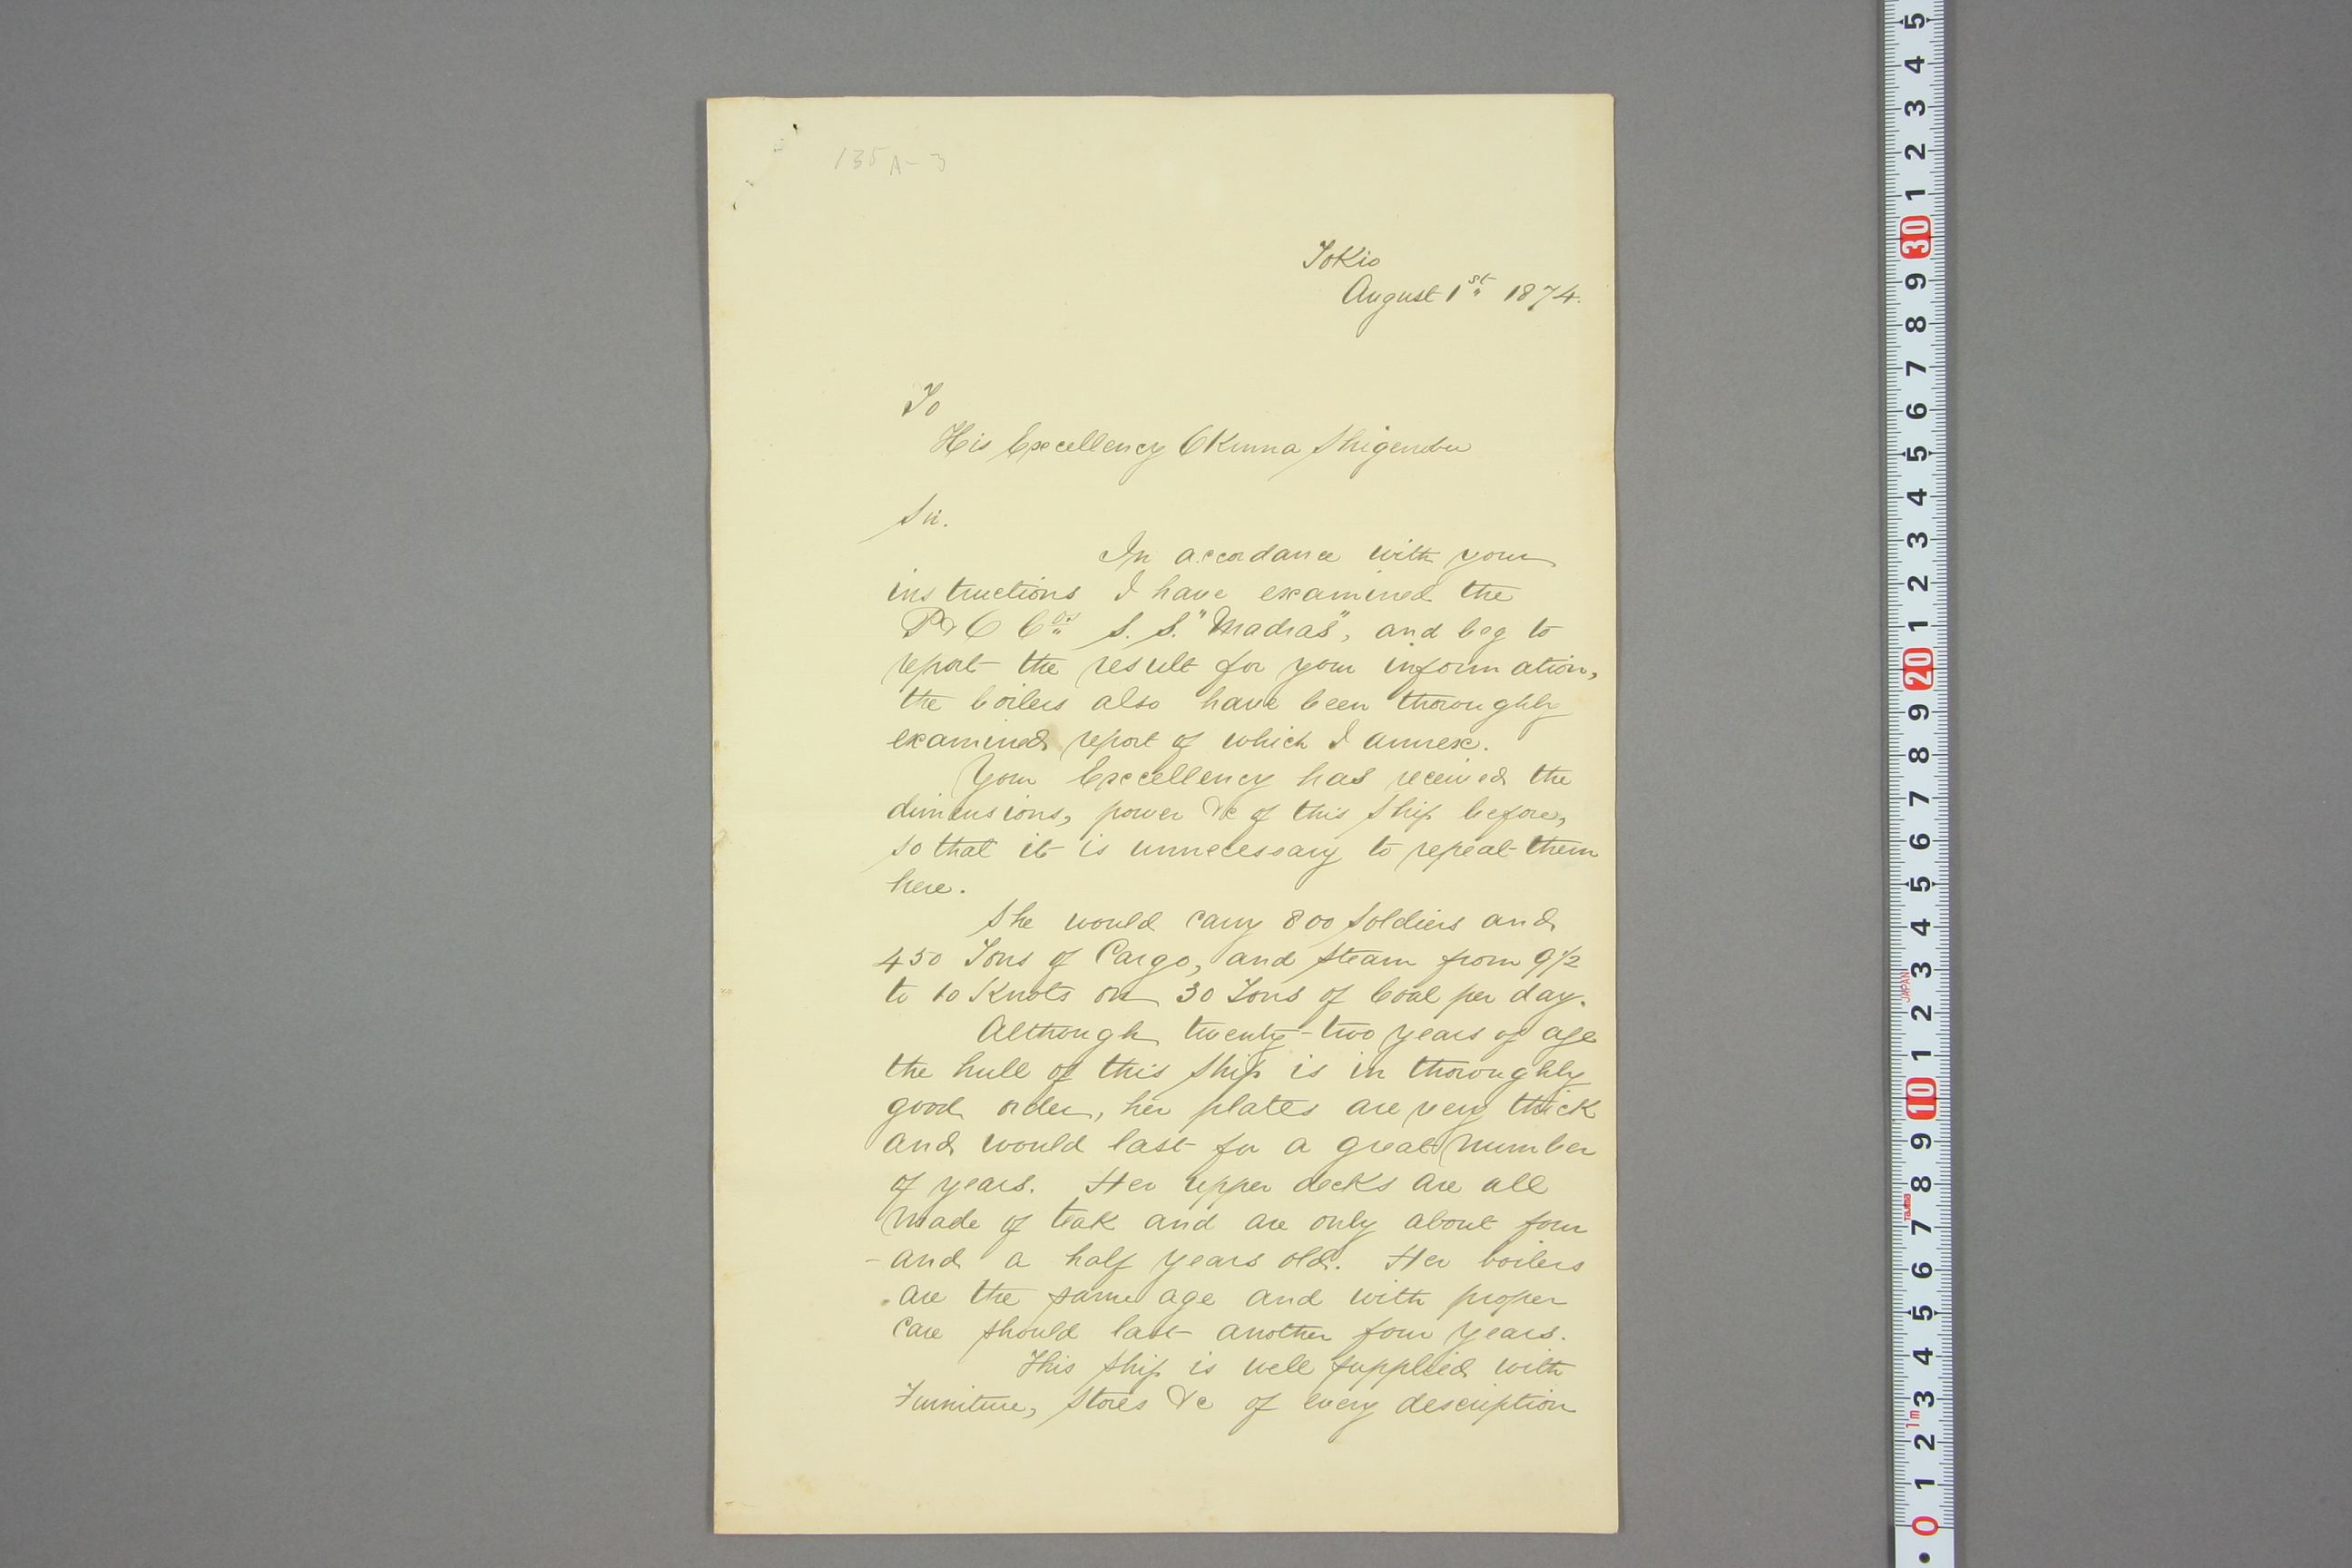 135A-3
Tokio
August 1st 1874.
To
His Excellency Okuma Shigenobu
Sir.
In accordance with your
instructions I have examined the
P & O Co's S. S. "Madras", and beg to
report the result for your information,
the boilers also have been thoroughly
examined report of which I annex.
Your Excellency has received the
dimensions, power &c of this Ship before,
so that it is unnecessary to repeat them
here.
She would carry 800 Soldiers and
450 Tons of Cargo, and steam from 9 1/2
to 10 Knots on 30 Tons of Coal per day.
Although twenty-two years of age
the hull of this Ship is in thoroughly
good order, her plates are very thick
and would last for a great number
of years. Her upper decks are all
made of teak and are only about four
- and a half years old. Her boilers
are the same age and with proper
care should last another four years.
This Ship is well supplied with
Furniture, Stores &c of every description
5
4
3
2
1
30
9
8
7
6
5
4
3
2
1
20
9
8
7
6
5
4
3
JAPAN
2
1
10
9
8
Tajima
7
6
5
4
3
1m
2
1
0